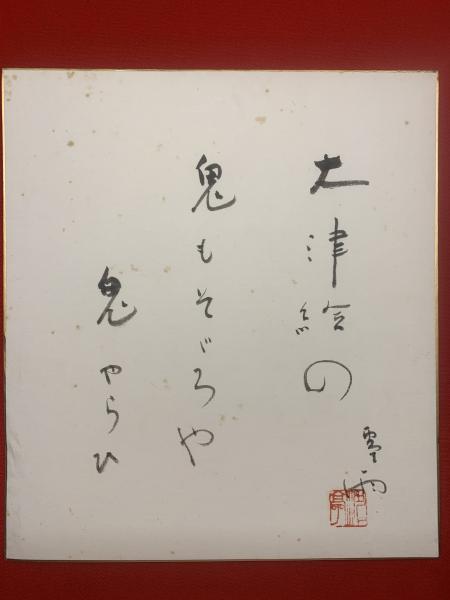 大津絵の
鬼もそゞろや
鬼やらひ